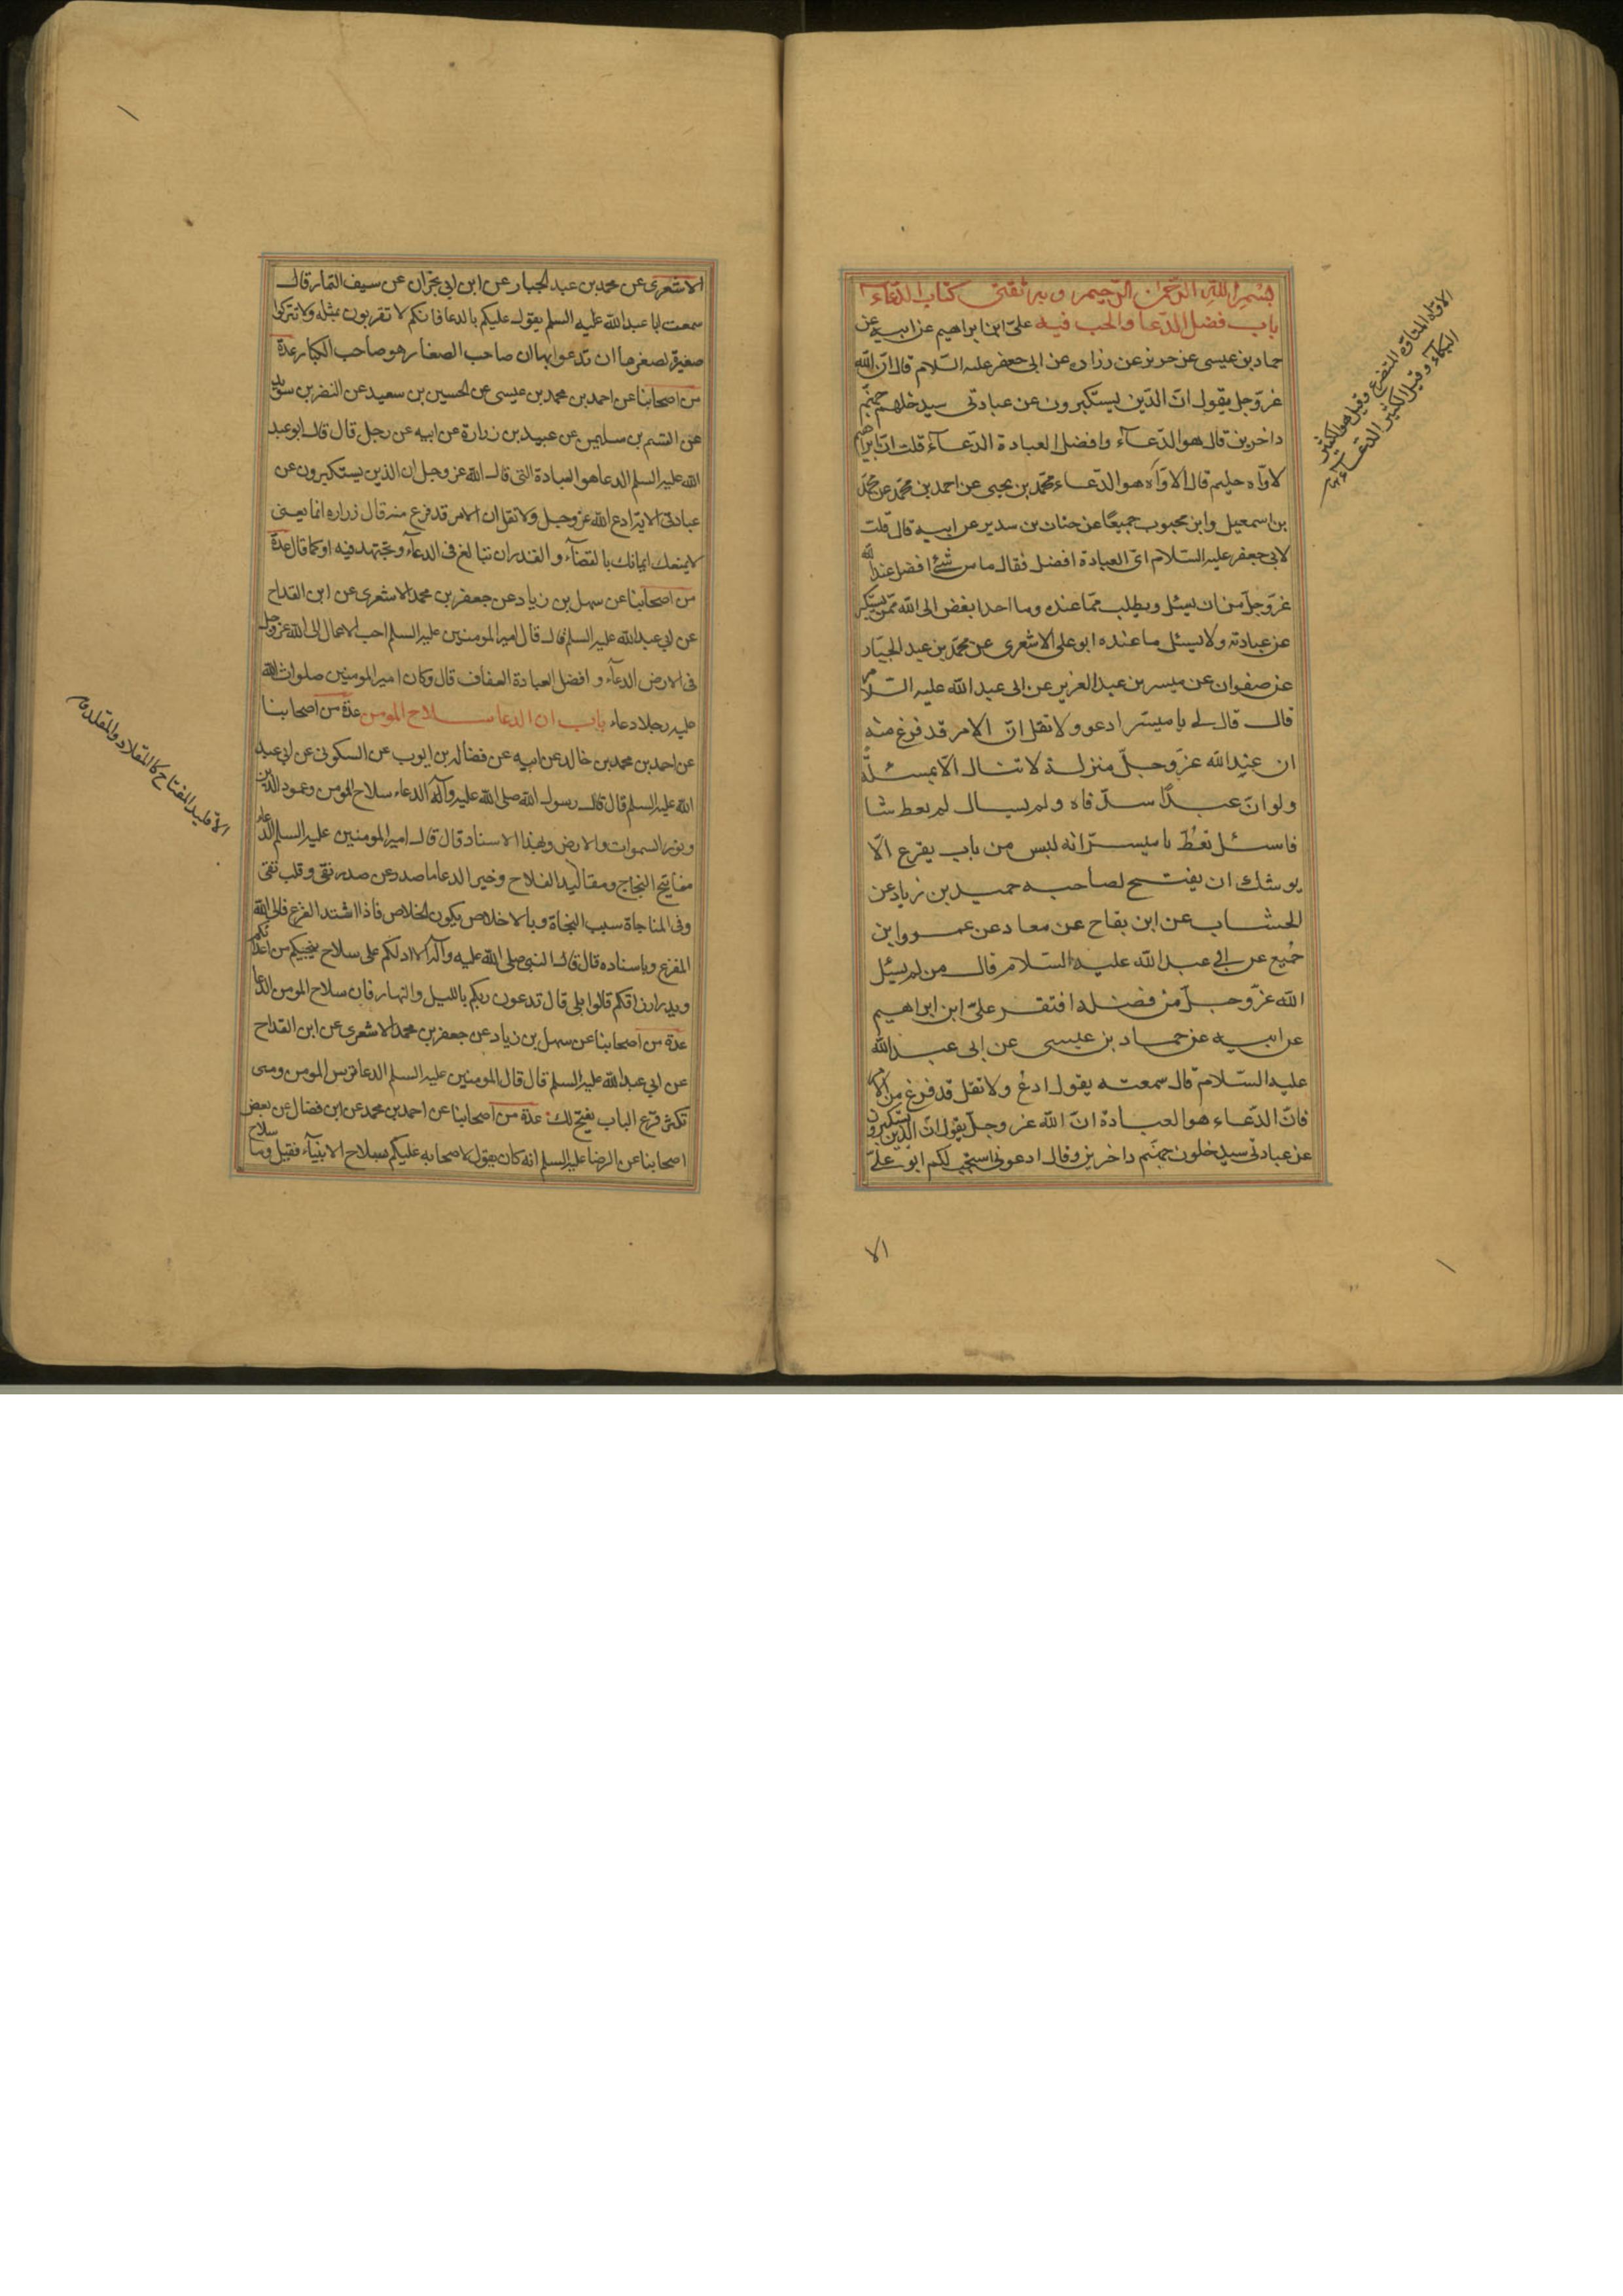 بسم الله الرحمن الرحيم وبه ثقتى كتاب الدعاء
باب فضل الدعا والحب فيه على ابن ابراهيم عن ابيه عن
حماد بن عيسى عن حريز عن زراره عن ابى جعفر عليه السلام قال ان الله
عز وجل يقول ان الذين يستكبرون عن عبادتى سيدخلهم جهنم
داخرين قال هو الدعاء وافضل العبادة الدعاء قلت ان ابراهيم
لاواه حليم قال الاواه هو الدعاء محمد بن يحيى عن احمد بن محمد عن محمد
بن اسمعيل وابن محبوب جميعا عن حنان بن سدير عن ابيه قال قلت
لابى جعفر عليه السلام اى العبادة افضل فقال ما من شئ افضل عند الله
عز وجل من ان يسئل ويطلب مما عنده وما احد ابغض الى الله ممن يستكبر
عن عبادته ولا يسئل ما عنده ابو على الاشعرى عن محمد بن عبد الجبار
عن صفوان عن ميسر بن عبد العزيز عن ابى عبد الله عليه السلام
قال قال لى يا ميسر ادعو ولا تقل ان الامر قد فرغ منه
ان عند الله عز وجل منزلة لا تنال الا بمسئلة
ولو ان عبدا سد فاه ولم يسال لم يعط شا
فاسئل تعط يا ميسر انه ليس من باب يقرع الا
يوشك ان يفتح لصاحبه حميد بن زياد عن
الخشاب عن ابن بقاح عن معاد عن عمرو ابن
جميع عن ابى عبد الله عليه السلام قال من لم يسئل
الله عز وجل من فضله افتقر على ابن ابراهيم
عن ابيه عن حماد بن عيسى عن ابى عبد الله
عليه السلام قال سمعته يقول ادع ولا تقل قد فرغ من الامر
فان الدعاء هو العبادة ان الله عز وجل يقول ان الذين يستكبرون
عن عبادتى سيدخلون جهنم داخرين وقال ادعونى استجب لكم ابو على
الا
الاواه المتاوه المتضرع وقيل هو الكثير
البكاء وقيل الكثير الدعاء
الاشعرى عن محمد بن عبد الجبار عن ابن ابى نجران عن سيف التمار قال
سمعت ابا عبد الله عليه السلم يقول عليكم بالدعا فانكم لا تقربون بمثله ولا تتركوا
صغيرة لصغرها ان تدعوا بها ان صاحب الصغار هو صاحب الكبار عدة
من اصحابنا عن احمد بن محمد بن عيسى عن الحسين بن سعيد عن النضر بن سويد
عن القسم بن سليمن عن عبيد بن زرارة عن ابيه عن رجل قال قال ابو عبد
الله عليه السلم الدعا هو العبادة التى قال الله عز وجل ان الذين يستكبرون عن
عبادتى الاية ادع الله عز وجل ولا تقل ان الامر قد فرغ منه قال زراره انما يعنى
لا يمنعك ايمانك بالقضاء والقدر ان تبالغ فى الدعاء وتجتهد فيه او كما قال عدة
من اصحابنا عن سهل بن زياد عن جعفر بن محمد الاشعرى عن ابن القداح
عن ابى عبد الله عليه السلم قال قال امير المومنين عليه السلم احب الاعمال الى الله عز وجل
فى الارض الدعاء و افضل العبادة العفاف قال وكان امير المومنين صلوات الله
عليه رجلا دعاء باب ان الدعا سلاح المومن عدة من اصحابنا
عن احمد بن محمد بن خالد عن ابيه عن فضاله بن ايوب عن السكونى عن ابى عبد
الله عليه السلم قال قال رسول الله صلى الله عليه وآله الدعاء سلاح المومن وعمود الدين
ونور السموات والارض وبهذا الاسناد قال قال امير المومنين عليه السلم الدعاء
مفاتيح النجاح ومقاليد الفلاح وخير الدعا ما صدر عن صدر نقى وقلب تقى
وفى المناجاة سبب النجاة وبالاخلاص يكون الخلاص فاذا اشتد الفزع فالى الله
المفزع وباسناده قال قال النبى صلى الله عليه وآله الا ادلكم على سلاح ينجيكم من اعدائكم
ويدر ارزاقكم قالوا بلى قال تدعون ربكم بالليل والنهار فان سلاح المومن الدعا
عدة من اصحابنا عن سهل بن زياد عن جعفر بن محمد الاشعرى عن ابن القداح
عن ابى عبد الله عليه السلم قال قال المومنين عليه السلم الدعا ترس المومن ومتى
تكثر قرع الباب يفتح لك عدة من اصحابنا عن احمد بن محمد عن ابن فضال عن بعض
اصحابنا عن الرضا عليه السلم انه كان يقول لاصحابه عليكم بسلاح الانبياء فقيل وما سلاح
الاقليد المفتاح كالمقلاد والمقلد